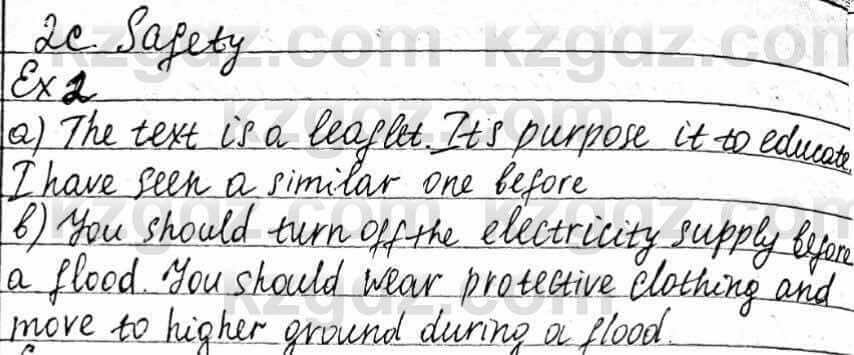 2c Safety
Ex 2
a) The text is a leaflet. It's purpose it to educate.
I have seen a similar one before
b) You should turn off the electricity supply before
a flood. You should wear protective clothing and
move to higher ground during a flood.